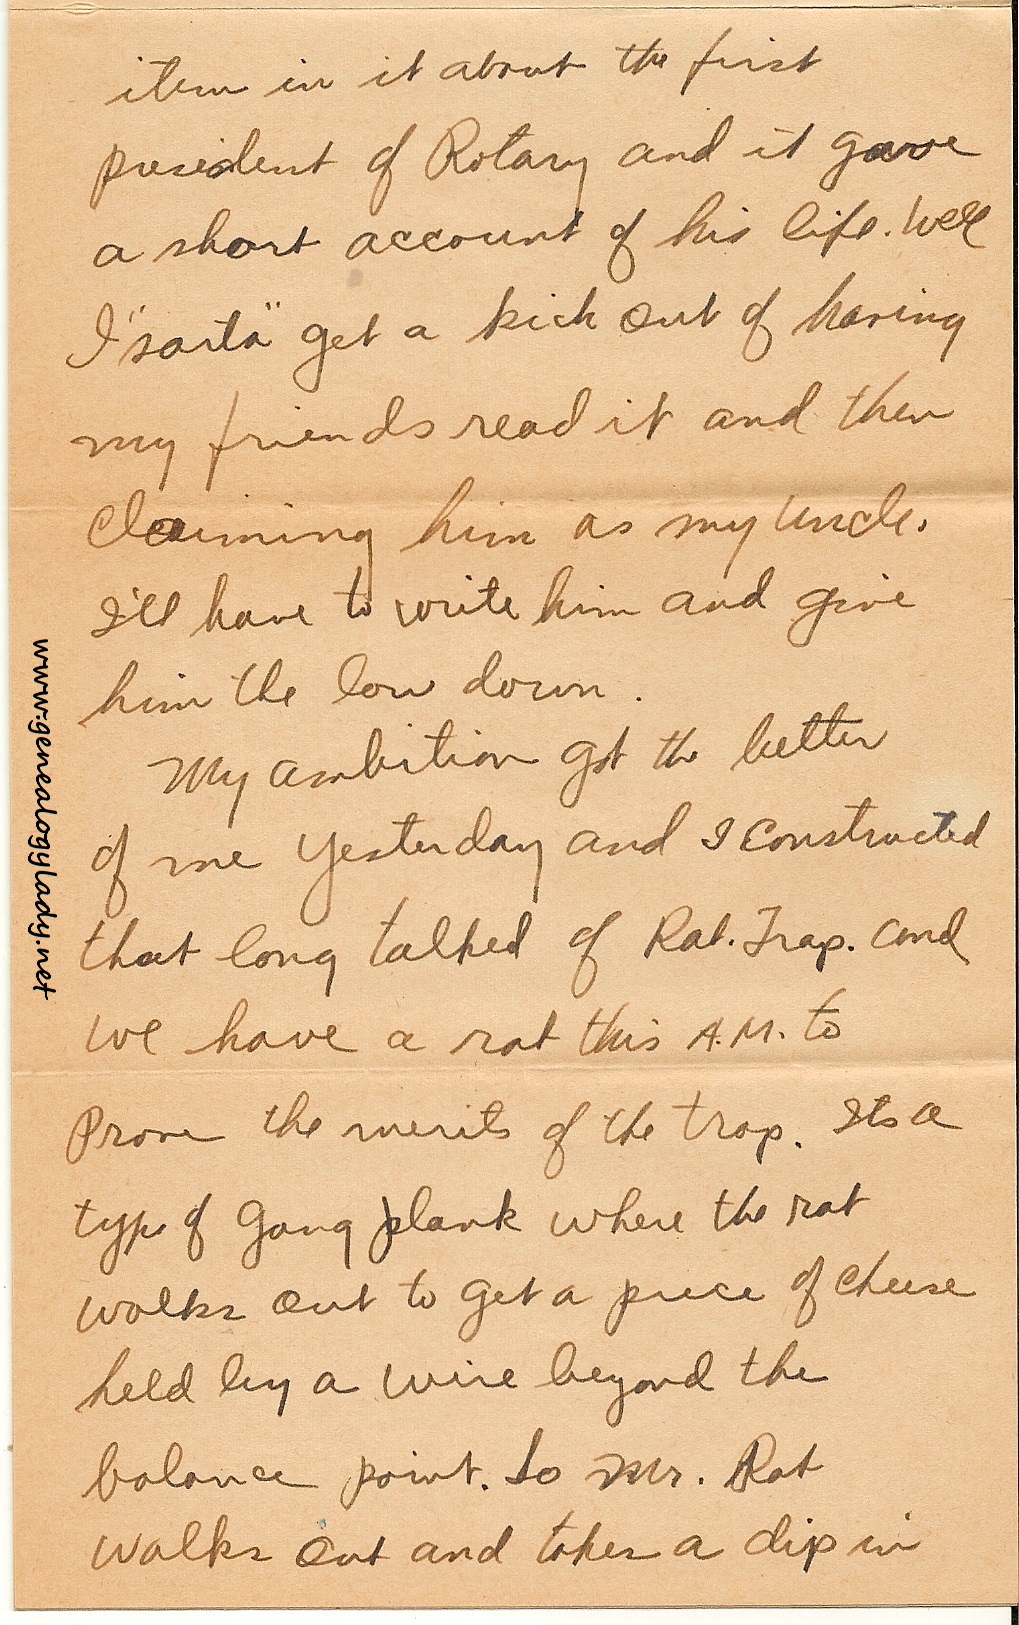 item in it about the first
president of Rotary and it gave
a short account of his life. Well
I "sorta" get a kick out of having
my friends read it and then
claiming him as my uncle.
I'll have to write him and give
him the low down.
My ambition got the better
of me yesterday and I constructed
that long talked of Rat. Trap. and
we have a rat this A.M. to
Prove the merits of the trap. Its a
type of Gang plank where the rat
walks out to get a piece of cheese
held by a wire beyond the
balance point. So Mr. Rat
walks out and takes a dip in
www.genealogylady.net